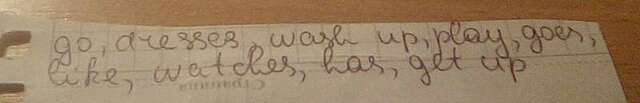 go, dresses, wash up, play, goes,
like, watches, has, get up